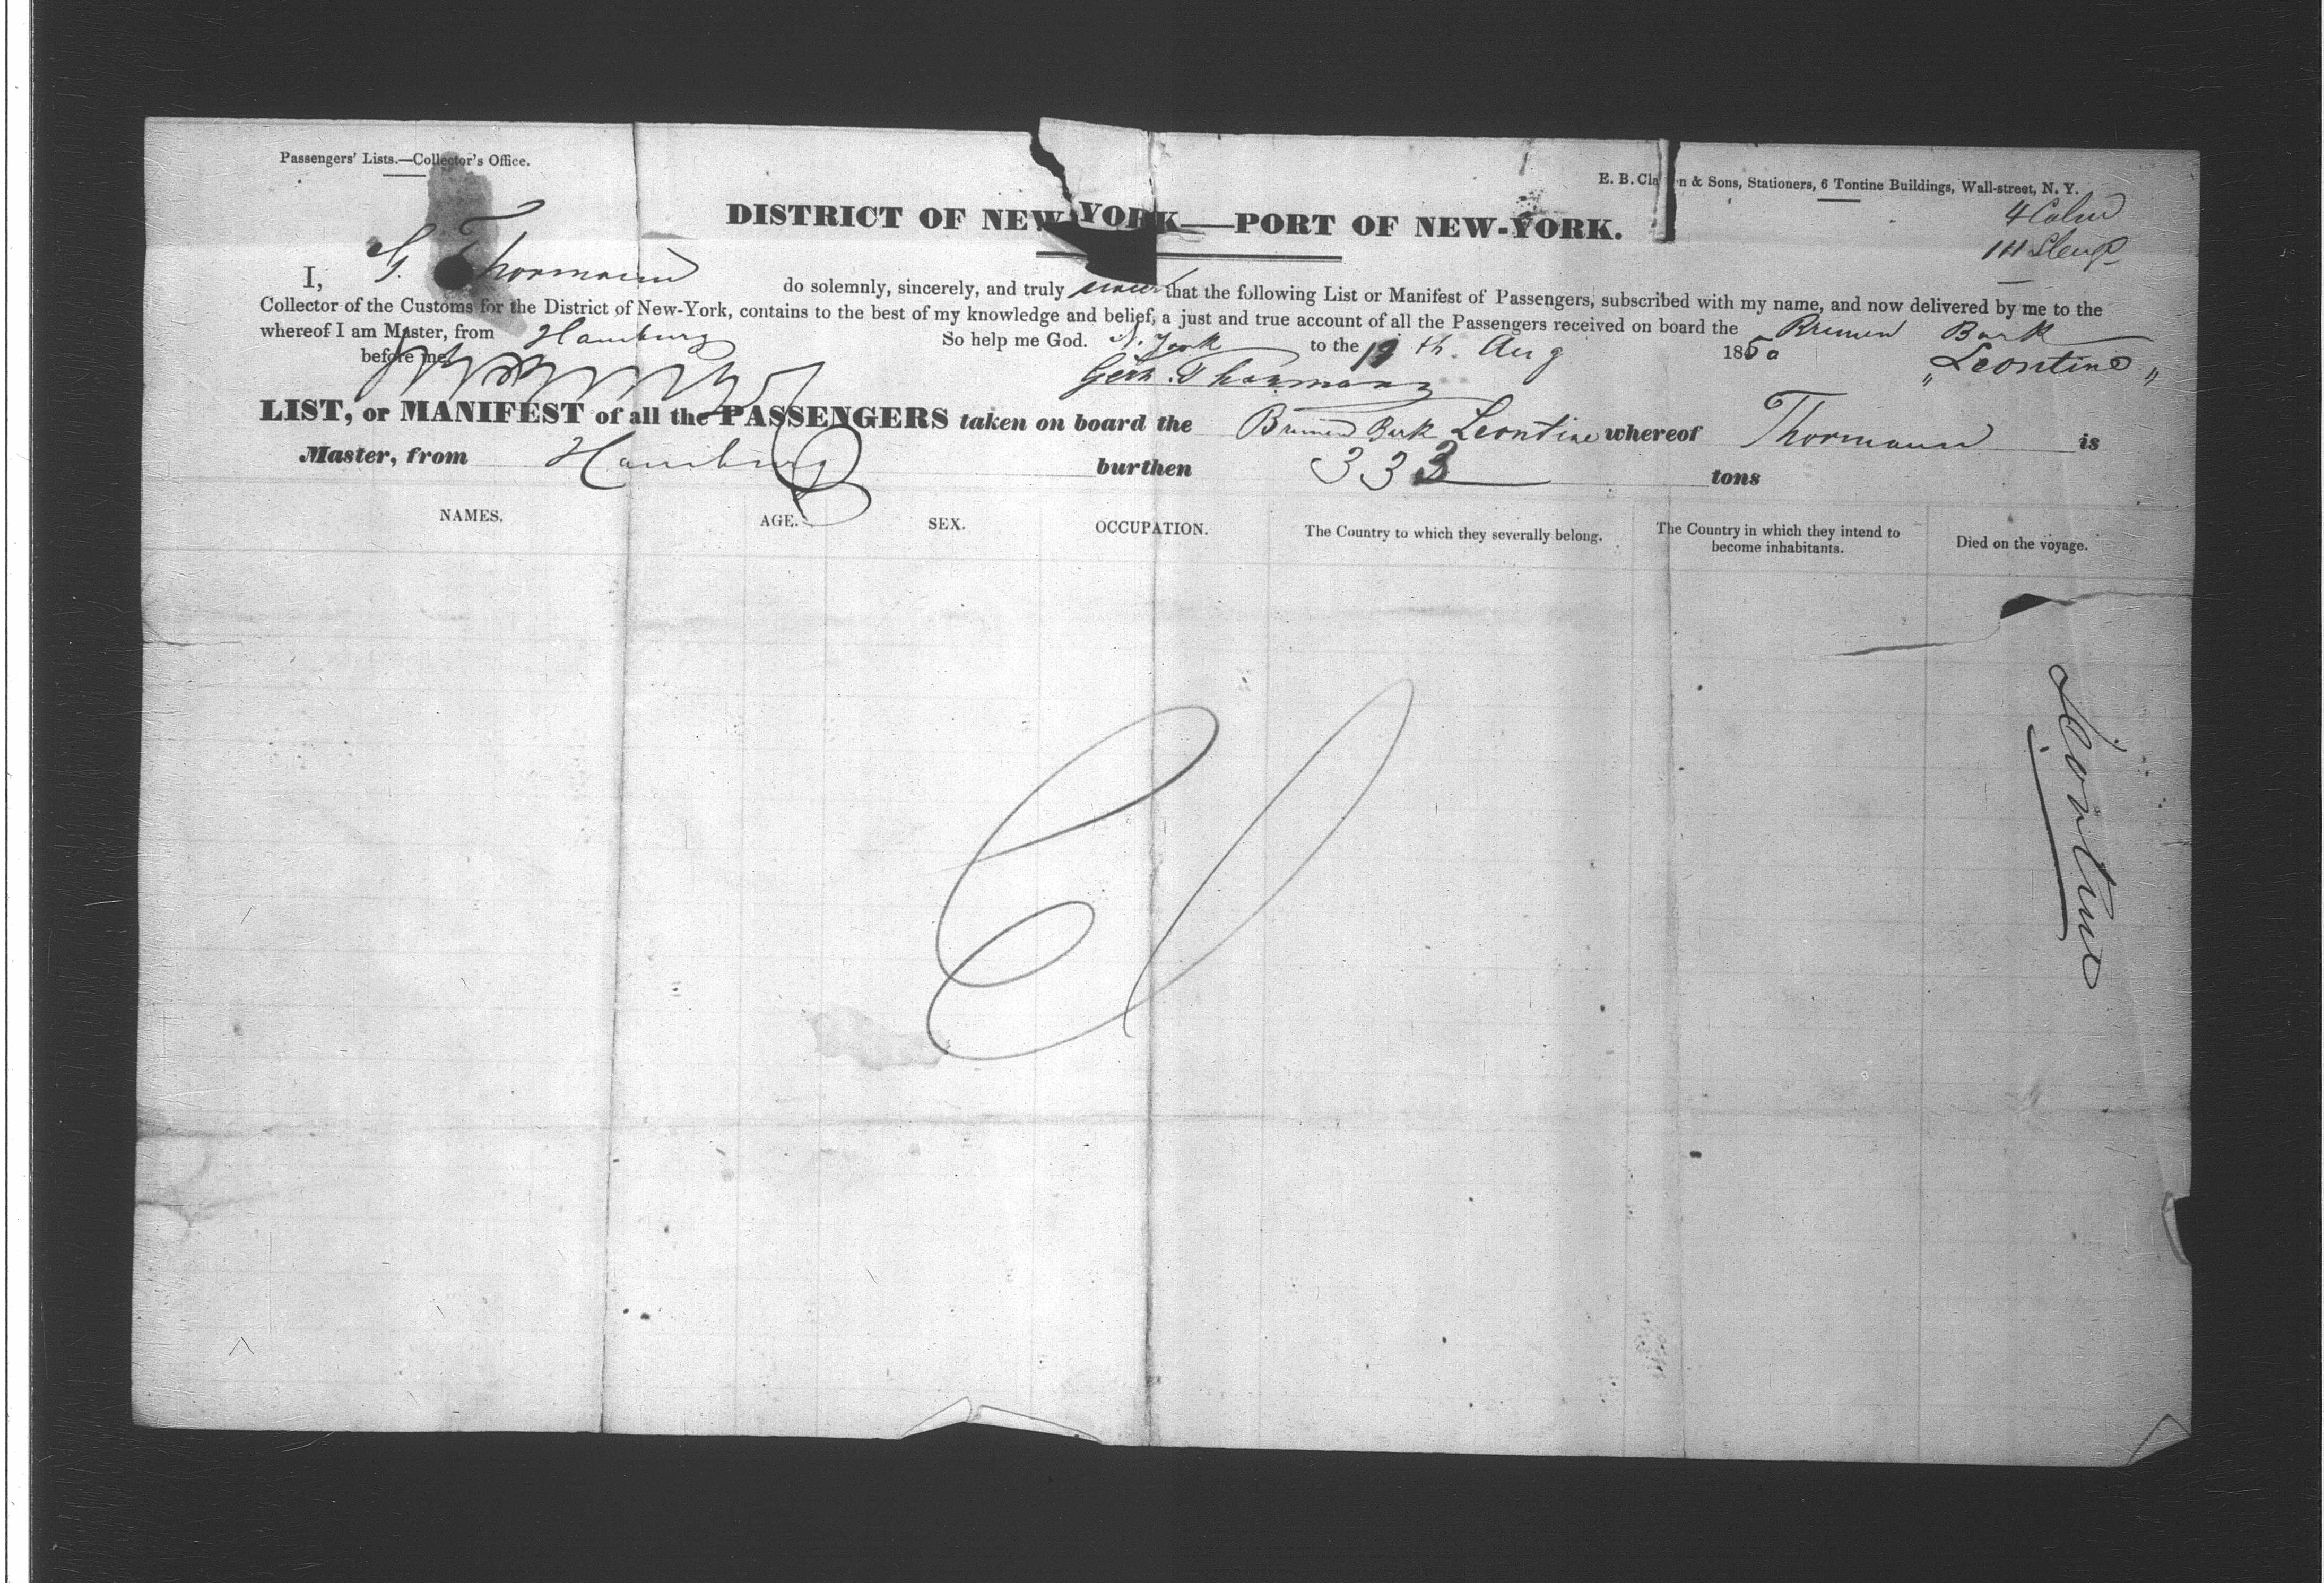 Passengers' Lists.—Collector's Office.
E. B. Cla n & Sons, Stationers, 6 Tontine Buildings, Wall-street, N. Y.
4 Cabin
DISTRICT OF NEW-YORK—PORT OF NEW-YORK.
I, G. Thormann do solemnly, sincerely, and truly swear that the following List or Manifest of Passengers, subscribed with my name, and now delivered by me to the
Collector of the Customs for the District of New-York, contains to the best of my knowledge and belief, a just and true account of all the Passengers received on board the Bremen Bark
whereof I am Master, from Hamburg to the N. York „Leontine„
So help me God. 19 th. Aug 1850
before me, Gerh. Thormann
LIST, or MANIFEST of all the PASSENGERS taken on board the Bremen Bark Leontine whereof Thormann is
Master, from Hamburg burthen 333 tons
NAMES. AGE. SEX. OCCUPATION. The Country to which they severally belong. The Country in which they intend to become inhabitants. Died on the voyage.
Leontine